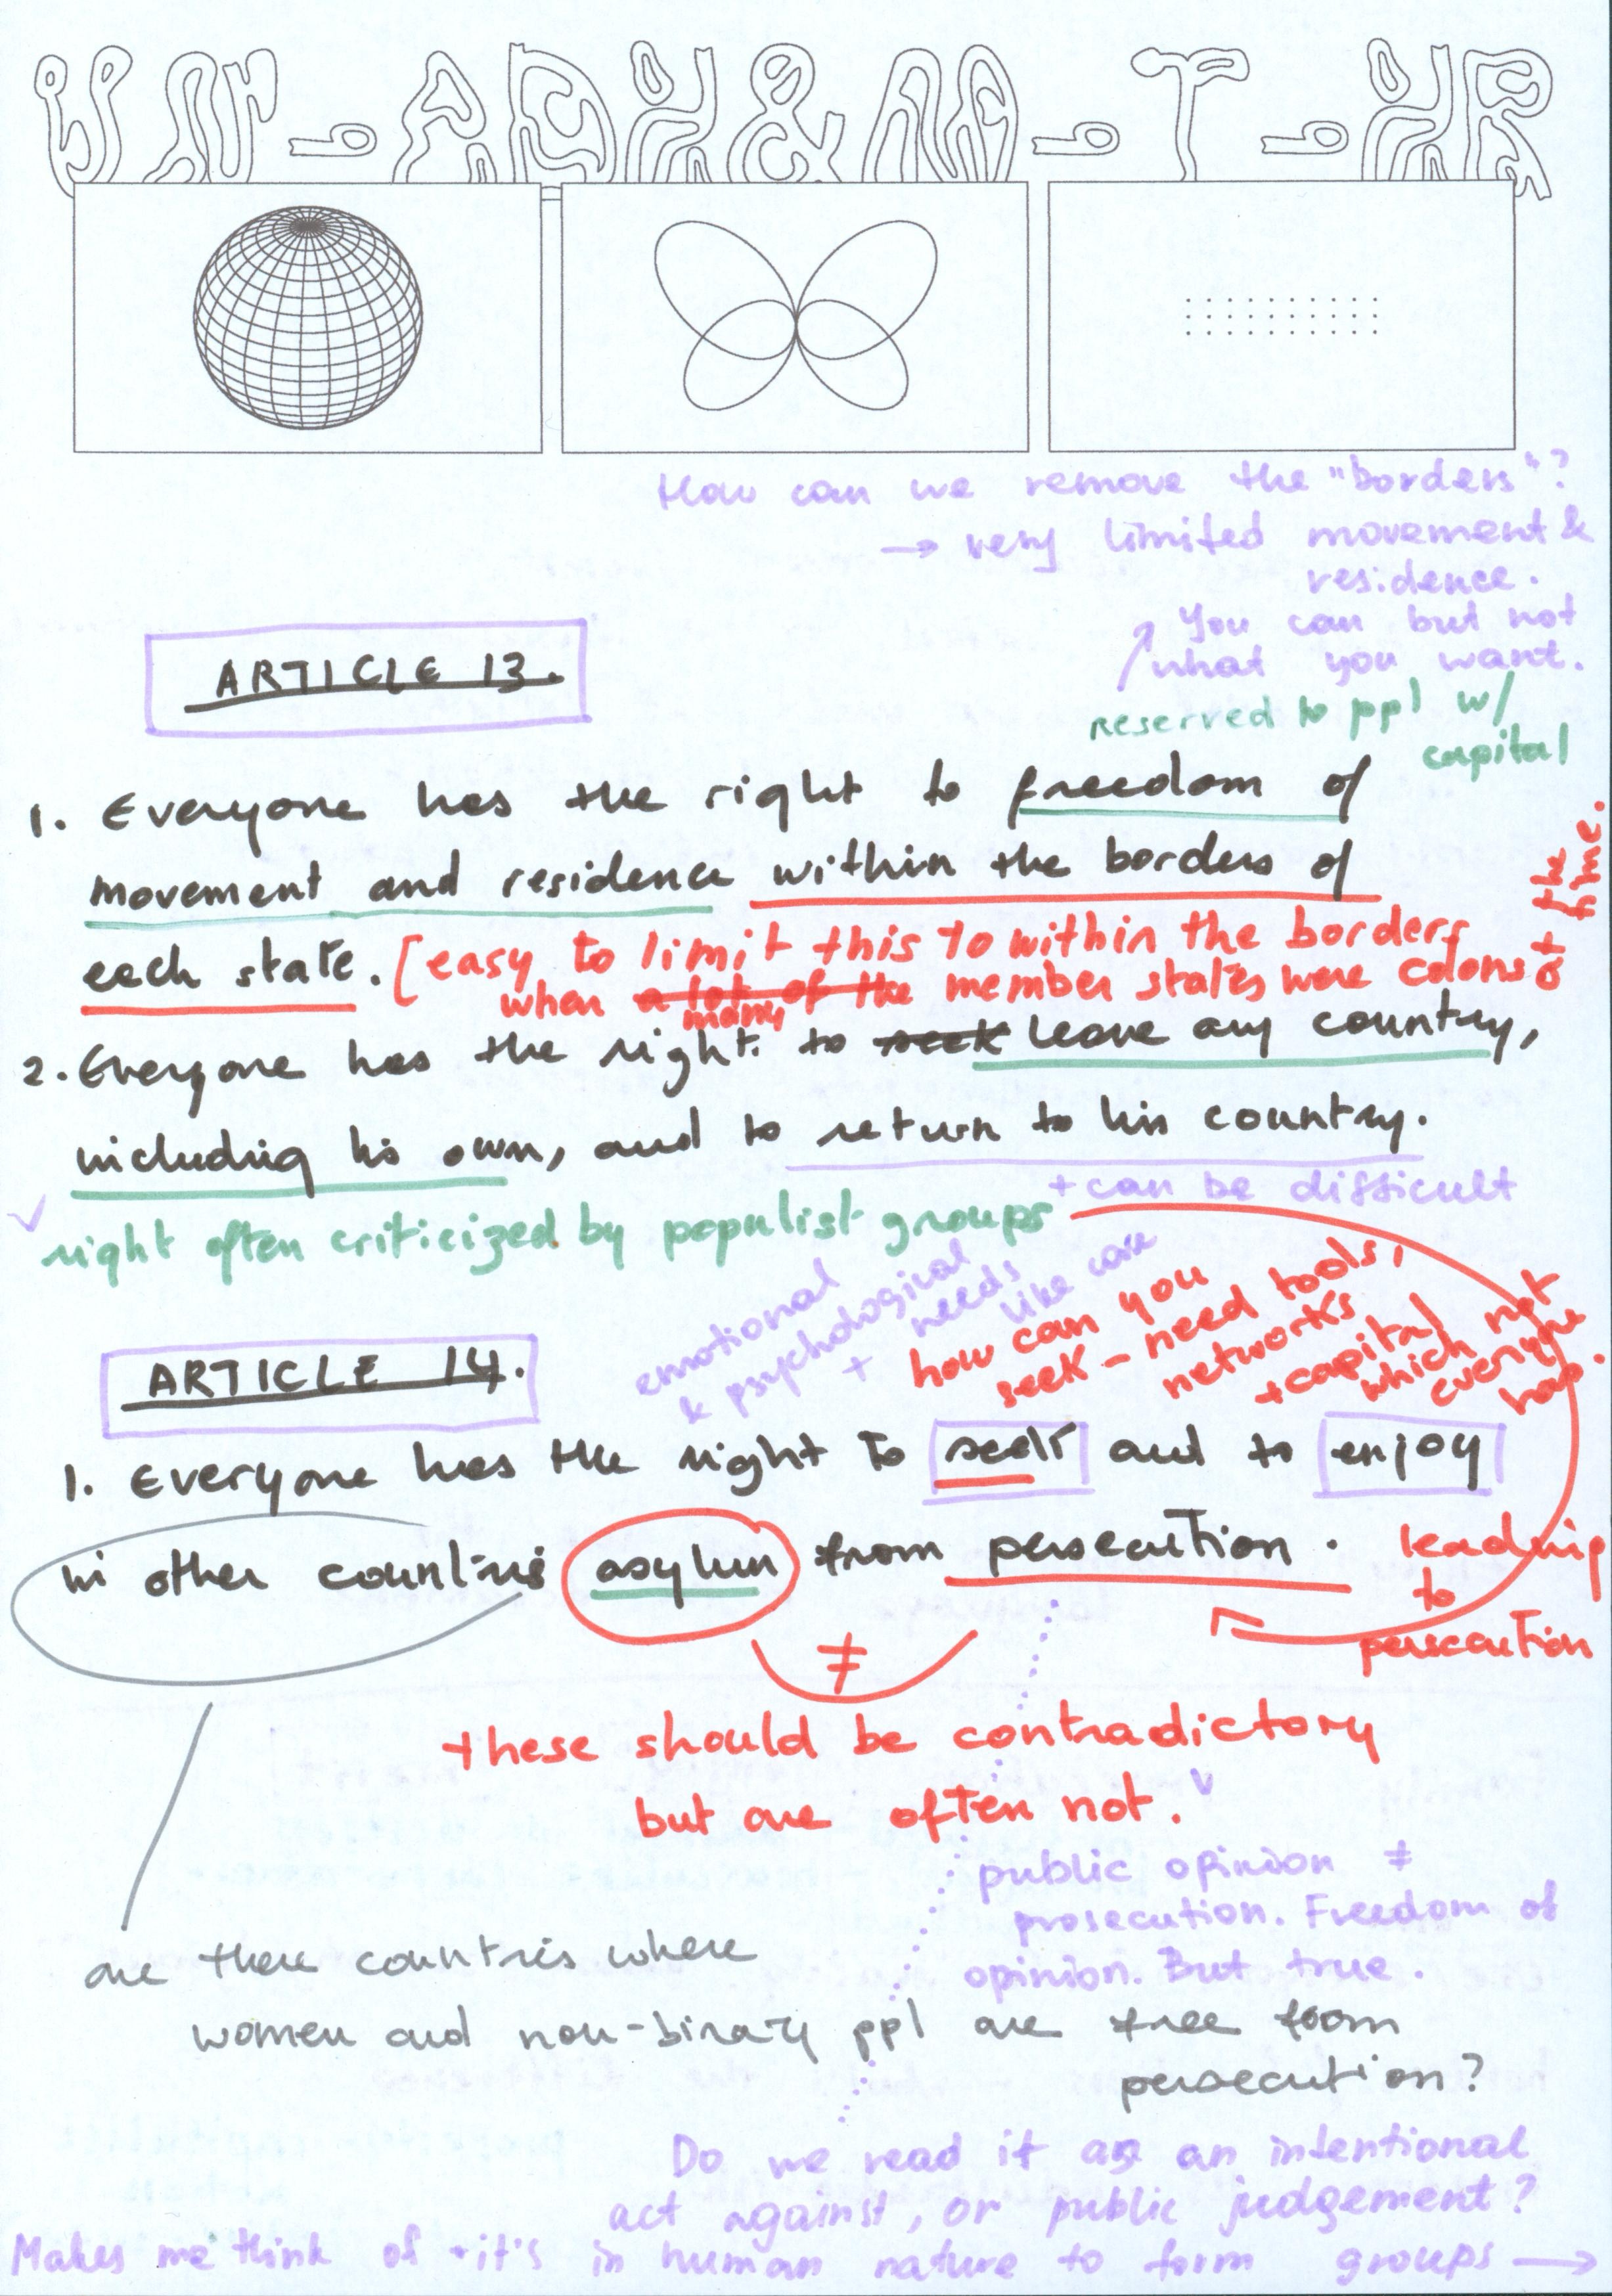 UN-ADH&M-T-HR
How can we remove the "borders"?
→ very limited movement &
residence.
You can but not
what you want.
reserved to ppl w/
capital
ARTICLE 13.
1. Everyone has the right to freedom of
movement and residence within the borders of
each state. [easy to limit this to within the borders
when a lot of the many member states were colons
at the time.
2. Everyone has the right to seek leave any country,
including his own, and to return to his country.
+ can be difficult
right often criticized by populist groups
emotional
& psychological
+ needs
like care
how can you
seek - need tools,
networks
+ capital
which not
everyone
has.
ARTICLE 14.
1. Everyone has the right to seek and to enjoy
in other countries asylum from persecution.
leading
to
persecution
≠
these should be contradictory
but are often not.
public opinion ≠
prosecution. Freedom of
opinion. But true.
are there countries where
women and non-binary ppl are free from
persecution?
Do we read it as an intentional
act against, or public judgement?
Makes me think of • it's in human nature to form groups →